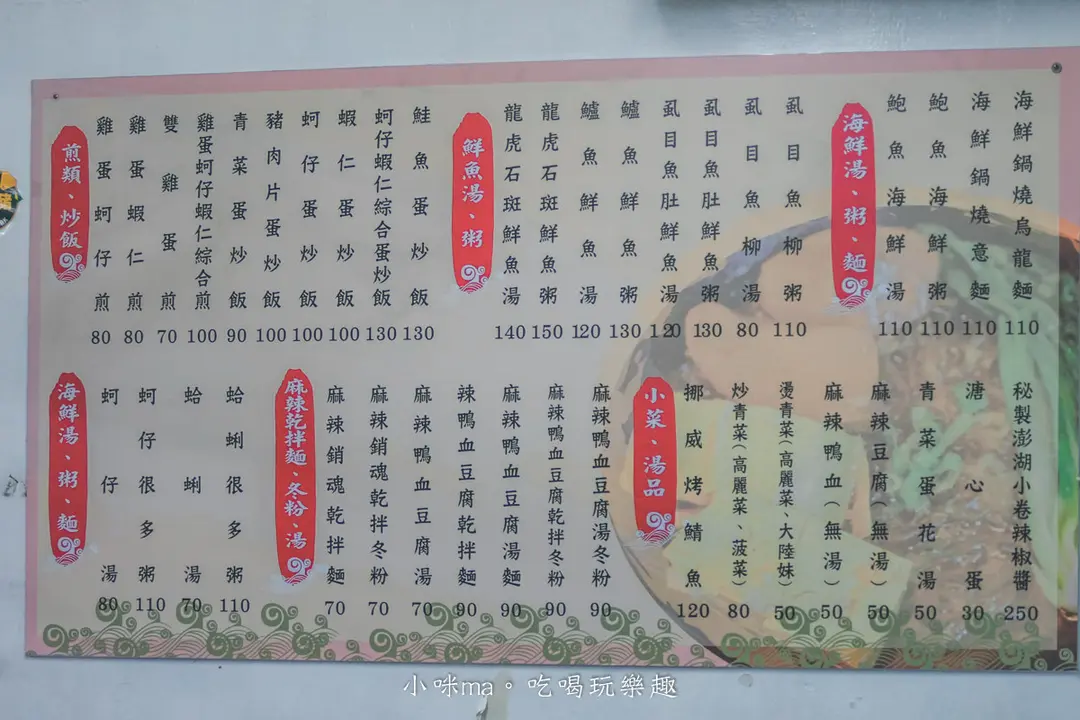 煎類、炒飯
雞蛋蚵仔煎 80
雞蛋蝦仁煎 80
雙雞蛋煎 70
雞蛋蚵仔蝦仁綜合煎 100
青菜蛋炒飯 90
豬肉片蛋炒飯 100
蚵仔蛋炒飯 100
蝦仁蛋炒飯 100
蚵仔蝦仁綜合蛋炒飯 130
鮭魚蛋炒飯 130
鮮魚湯、粥
龍虎石斑鮮魚湯 140
龍虎石斑鮮魚粥 150
鱸魚鮮魚湯 120
鱸魚鮮魚粥 130
虱目魚肚鮮魚湯 120
虱目魚肚鮮魚粥 130
虱目魚柳湯 80
虱目魚柳粥 110
海鮮湯、粥、麵
鮑魚海鮮湯 110
鮑魚海鮮粥 110
海鮮鍋燒意麵 110
海鮮鍋燒烏龍麵 110
海鮮湯、粥、麵
蚵仔湯 80
蚵仔很多粥 110
蛤蜊湯 70
蛤蜊很多粥 110
麻辣乾拌麵、冬粉、湯
麻辣銷魂乾拌麵 70
麻辣銷魂乾拌冬粉 70
麻辣鴨血豆腐湯 70
辣鴨血豆腐乾拌麵 90
麻辣鴨血豆腐湯麵 90
麻辣鴨血豆腐乾拌冬粉 90
麻辣鴨血豆腐湯冬粉 90
小菜、湯品
挪威烤鯖魚 120
炒青菜(高麗菜、菠菜) 80
燙青菜(高麗菜、大陸妹) 50
麻辣鴨血(無湯) 50
麻辣豆腐(無湯) 50
青菜蛋花湯 50
溏心蛋 30
秘製澎湖小卷辣椒醬 250
小咪ma。吃喝玩樂趣